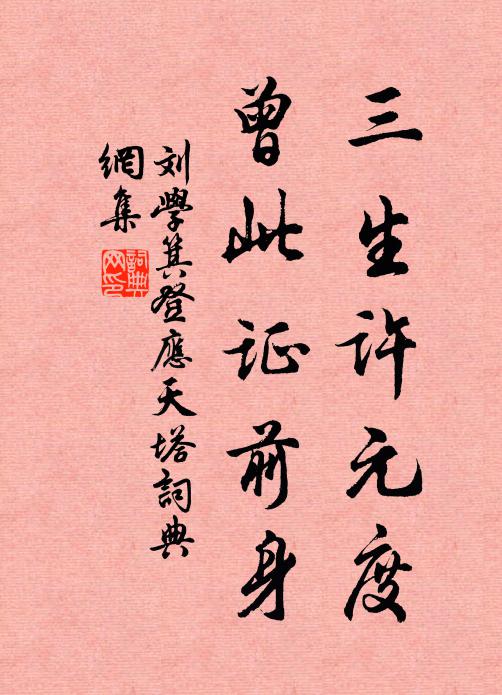 三生许元度
曾此证前身
刘學箕登應天塔詞典
網集
詞典
网印